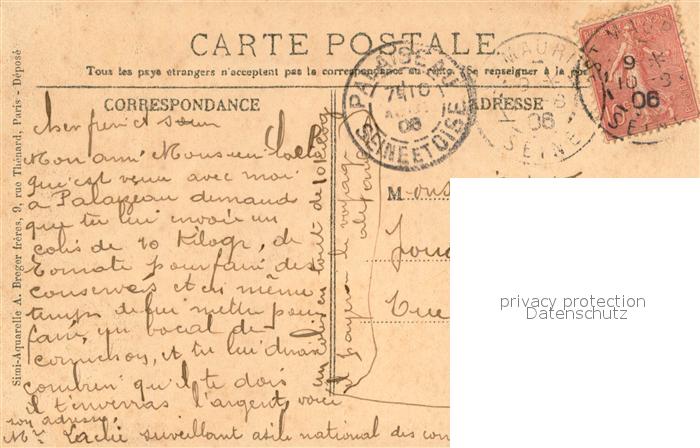 CARTE POSTALE
Tous les pays étrangers n'acceptent pas la correspondance au recto. (Se renseigner à la poste
CORRESPONDANCE
ADRESSE
Simi-Aquarelle A. Breger frères, 9, rue Thénard, Paris - Déposé
PALAISEAU
7E 10
08
SEINE ET OISE
MAURI
06
SEINE
9
10 - 8
06
Cher frère et sœur
Mon ami Monsieur
qui est venu avec moi
à Palaiseau demand
que tu lui envoie un
colis de 10 Kilogr, de
Tomate pour faire des
conserves et en même
temps de lui mettre pour
faire, un bocal de
cornichon, et tu lui diras
combien qu'il te dois
il t'enverras l'argent, voici
son adresse,
Mr surveillant asile national des con
un colis en tout de 10 Kilog
il payera le voyage
Mons
Rue
privacy protection
Datenschutz